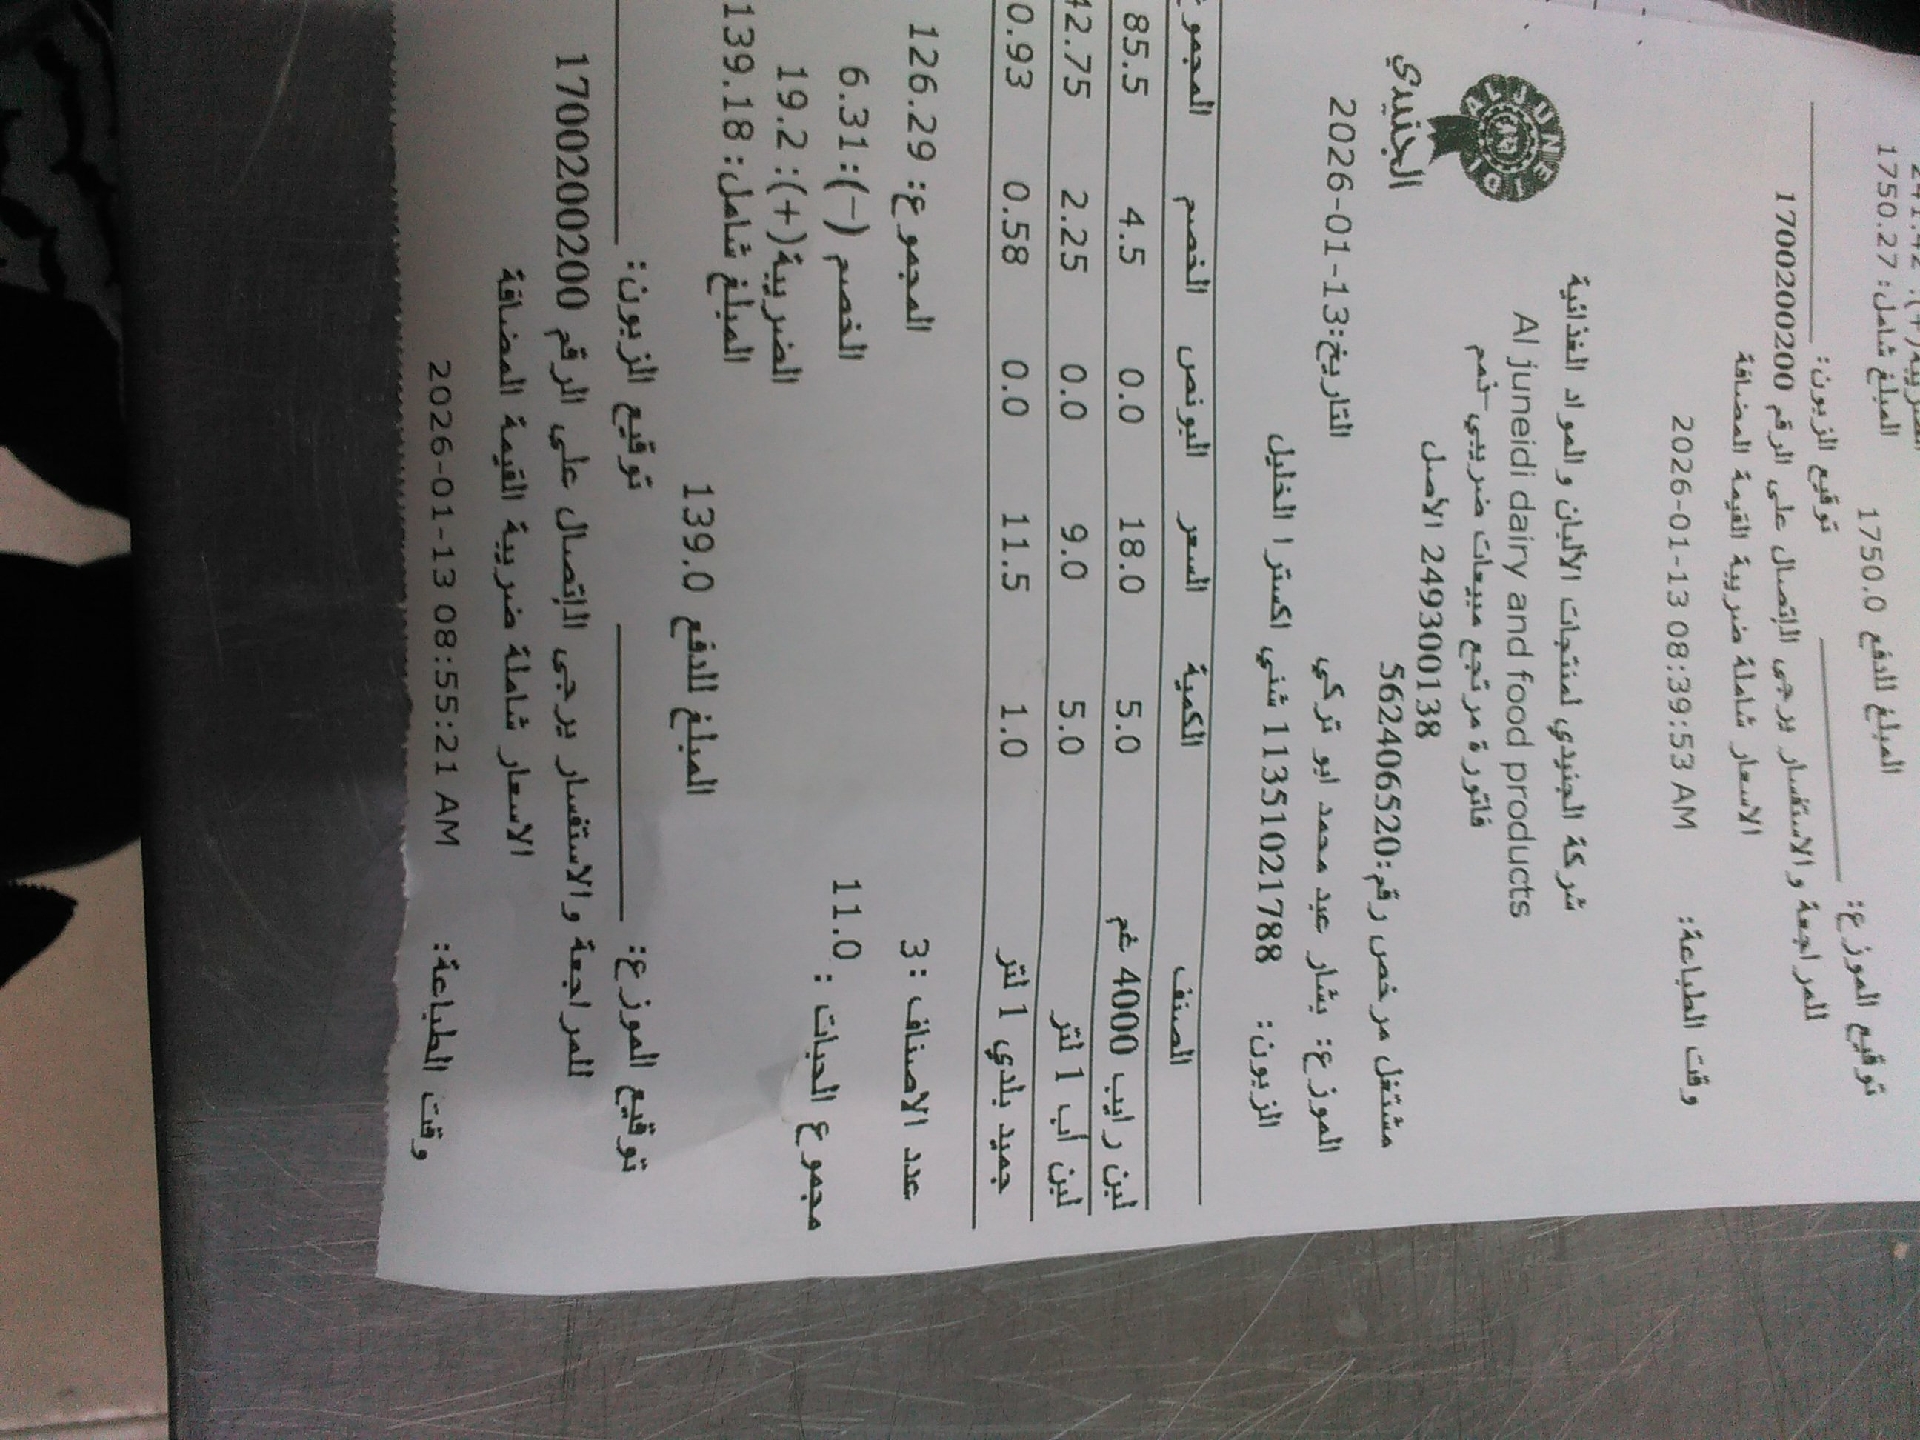 المبلغ شامل: 1750.27
المبلغ للدفع 1750.0
توقيع الموزع: توقيع الزبون:
للمراجعة والاستفسار يرجى الإتصال على الرقم 1700200200
الاسعار شاملة ضريبة القيمة المضافة
وقت الطباعة: 2026-01-13 08:39:53 AM
شركة الجنيدي لمنتجات الألبان والمواد الغذائية
Al juneidi dairy and food products
فاتورة مرتجع مبيعات ضريبي-ذمم
249300138 الأصل
AL JUNEIDI
الجنيدي
مشتغل مرخص رقم:562406520
التاريخ:2026-01-13
الموزع: بشار عبد محمد ابو تركي
الزبون: 11351021788 شني اكسترا الخليل
الصنف الكمية السعر البونص الخصم المجموع
لبن رايب 4000 غم 5.0 18.0 0.0 4.5 85.5
لبن أب 1 لتر 5.0 9.0 0.0 2.25 42.75
جميد بلدي 1 لتر 1.0 11.5 0.0 0.58 0.93
عدد الاصناف :3 المجموع: 126.29
مجموع الحبات : 11.0 الخصم (-):6.31
الضريبة(+): 19.2
المبلغ شامل: 139.18
المبلغ للدفع 139.0
توقيع الموزع: توقيع الزبون:
للمراجعة والاستفسار يرجى الإتصال على الرقم 1700200200
الاسعار شاملة ضريبة القيمة المضافة
وقت الطباعة: 2026-01-13 08:55:21 AM